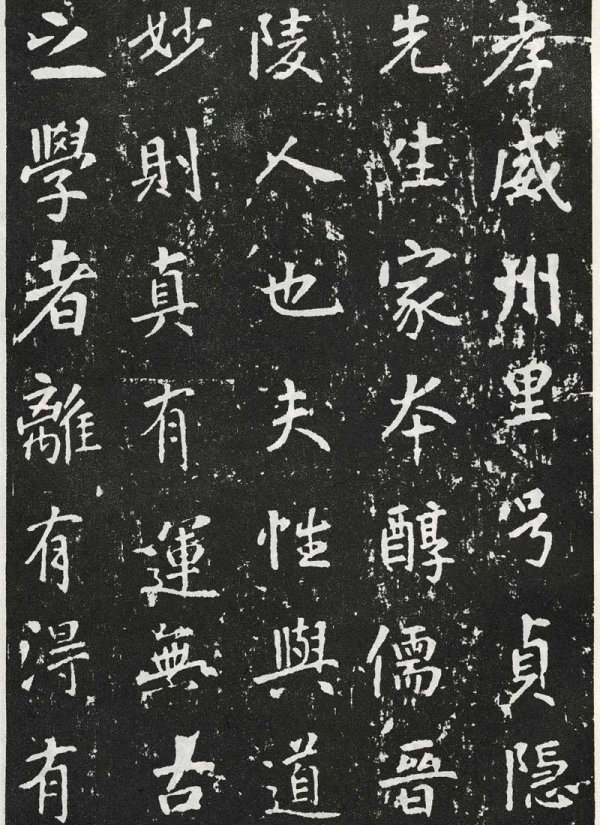 孝威州里号貞隠
先生家本醇儒晉
陵人也夫性與道
妙則真有運無古
之學者離有得有